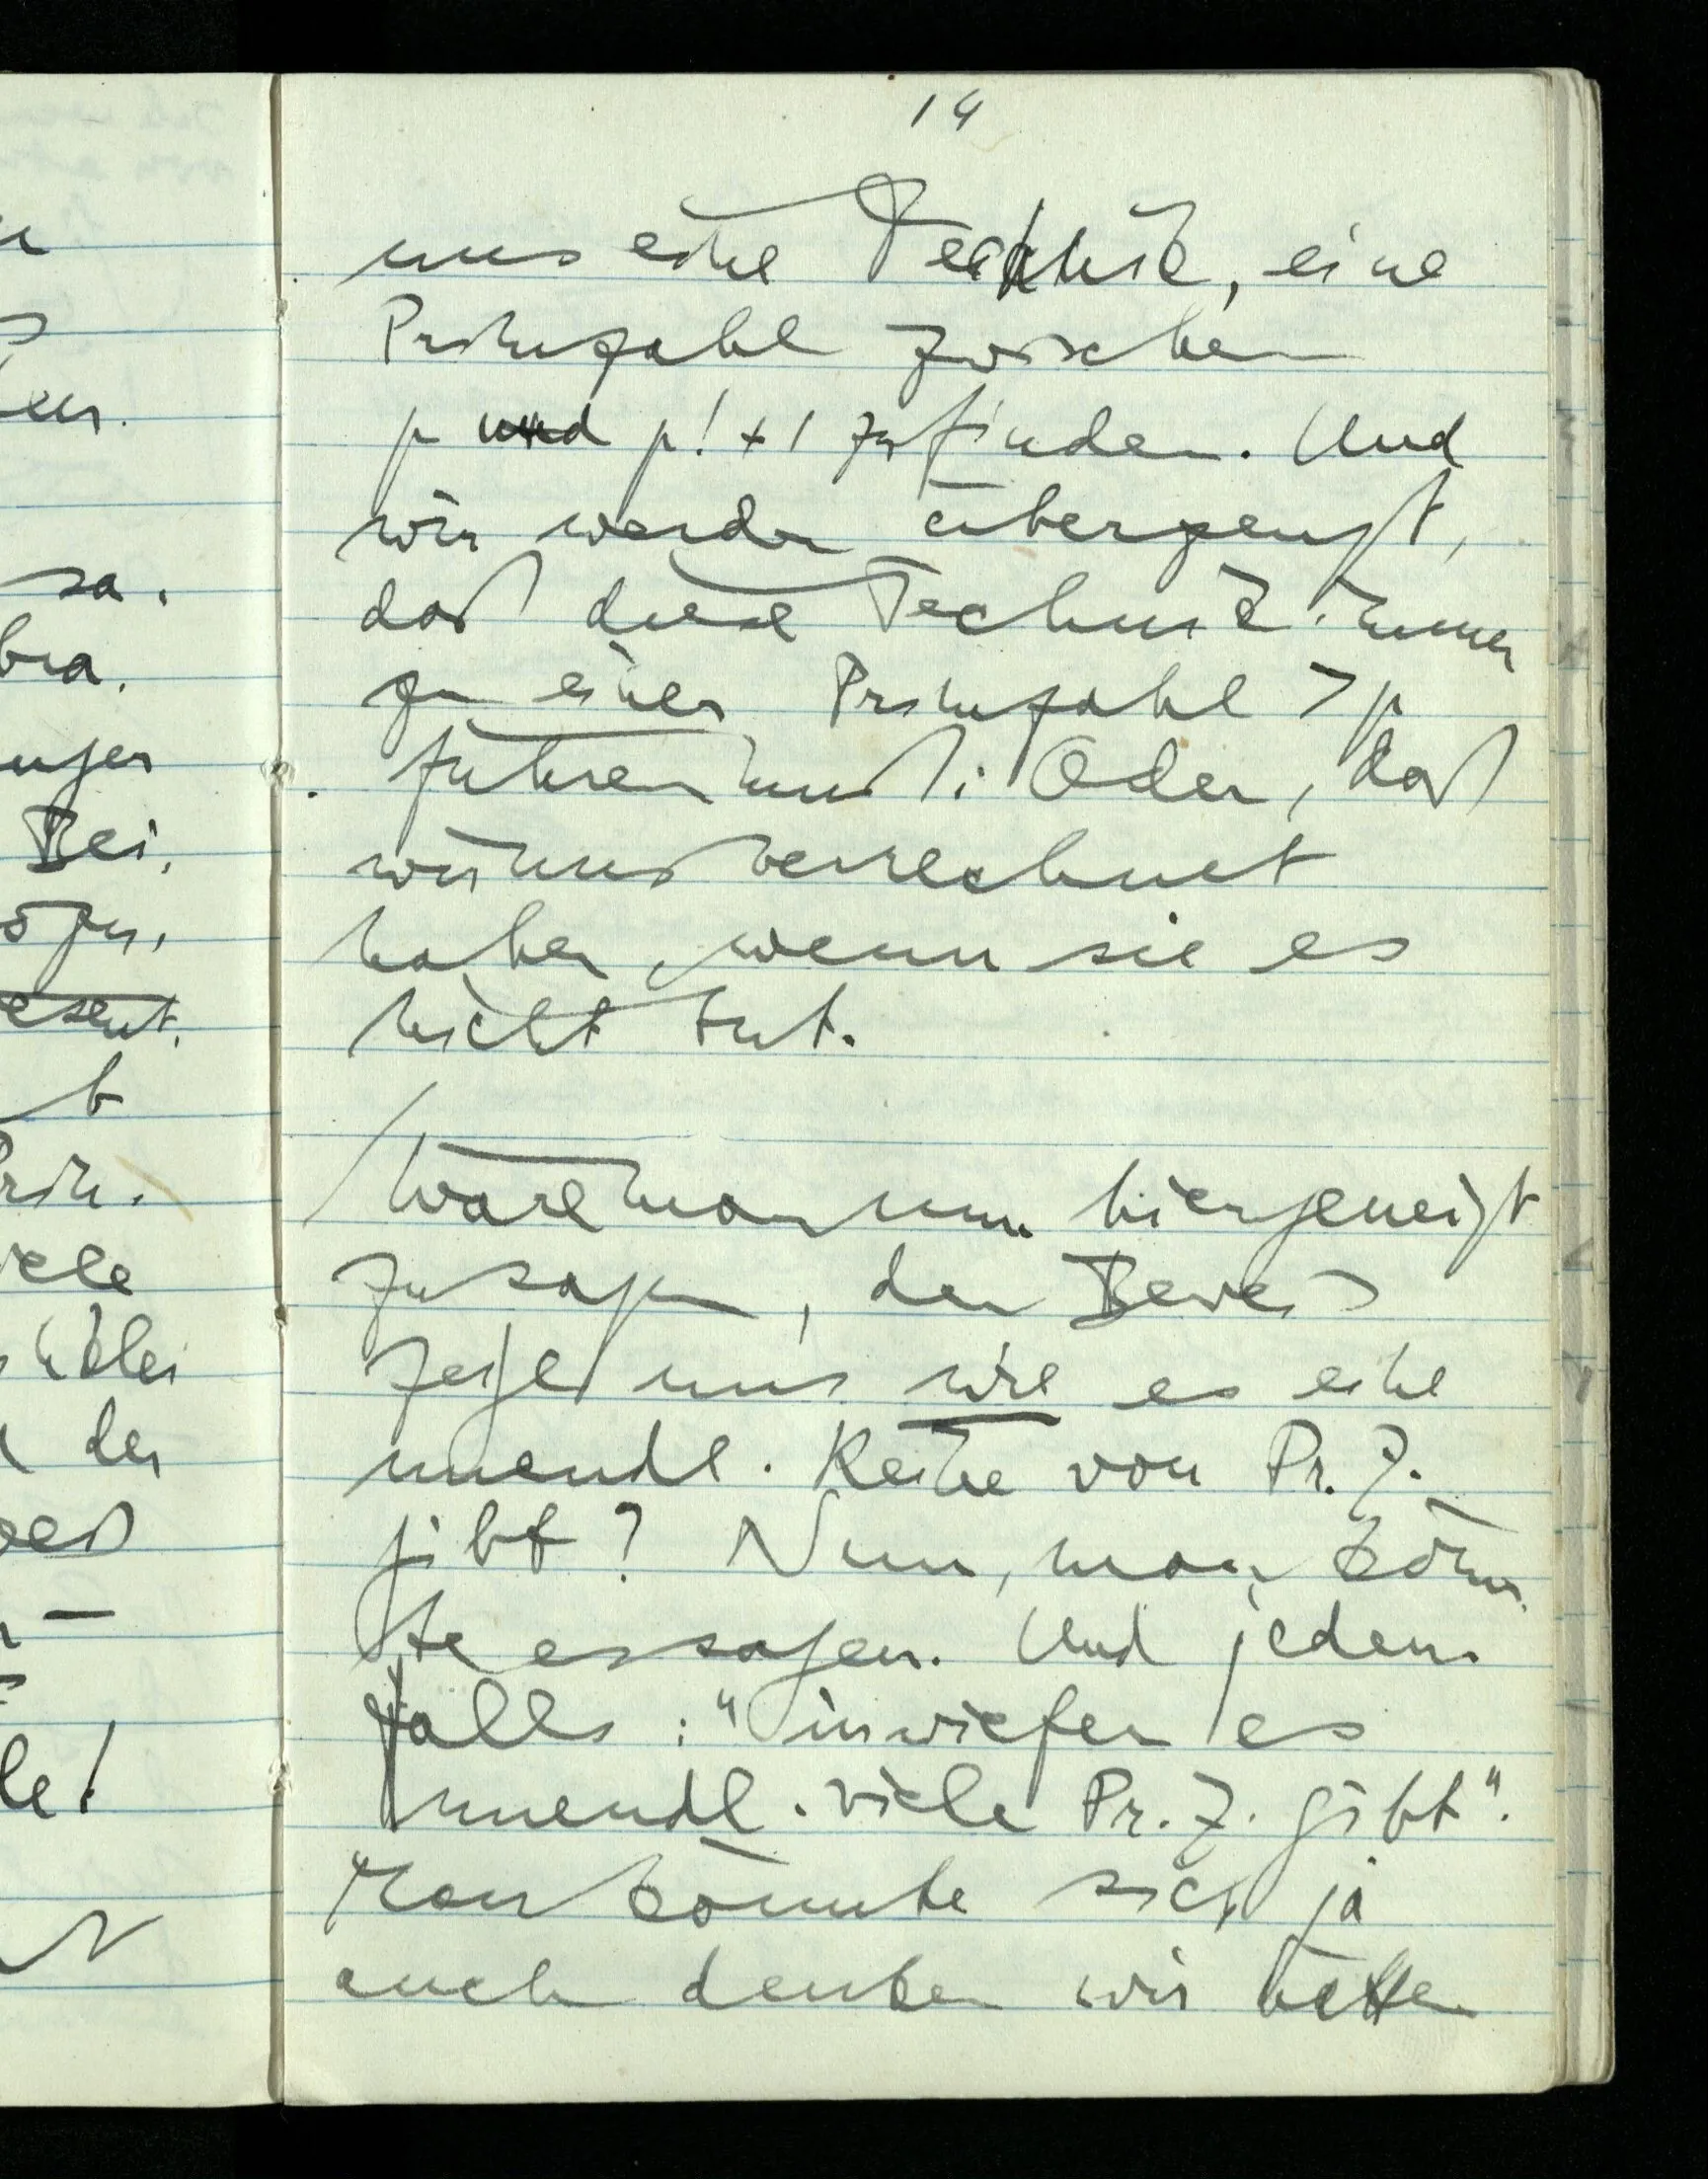 14
uns eine Technik, eine
Primzahl zwischen
p und p! + 1 zu finden. Und
wir werden überzeugt,
daß diese Technik immer
zu einer Primzahl > p
führen muß. Oder, daß
wir uns verrechnet
haben, wenn sie es
nicht tut.
/ Wäre man nun hier geneigt
zu sagen, der Beweis
zeige uns wie es eine
unendl. Reihe von Pr. Z.
gibt? Nun, man könn-
te es sagen. Und jeden-
falls: "inwiefern es
unendl. viele Pr. Z. gibt".
Man könnte sich ja
auch denken wir hätten
sa.
bra.
Bei.
b
Prim.
der